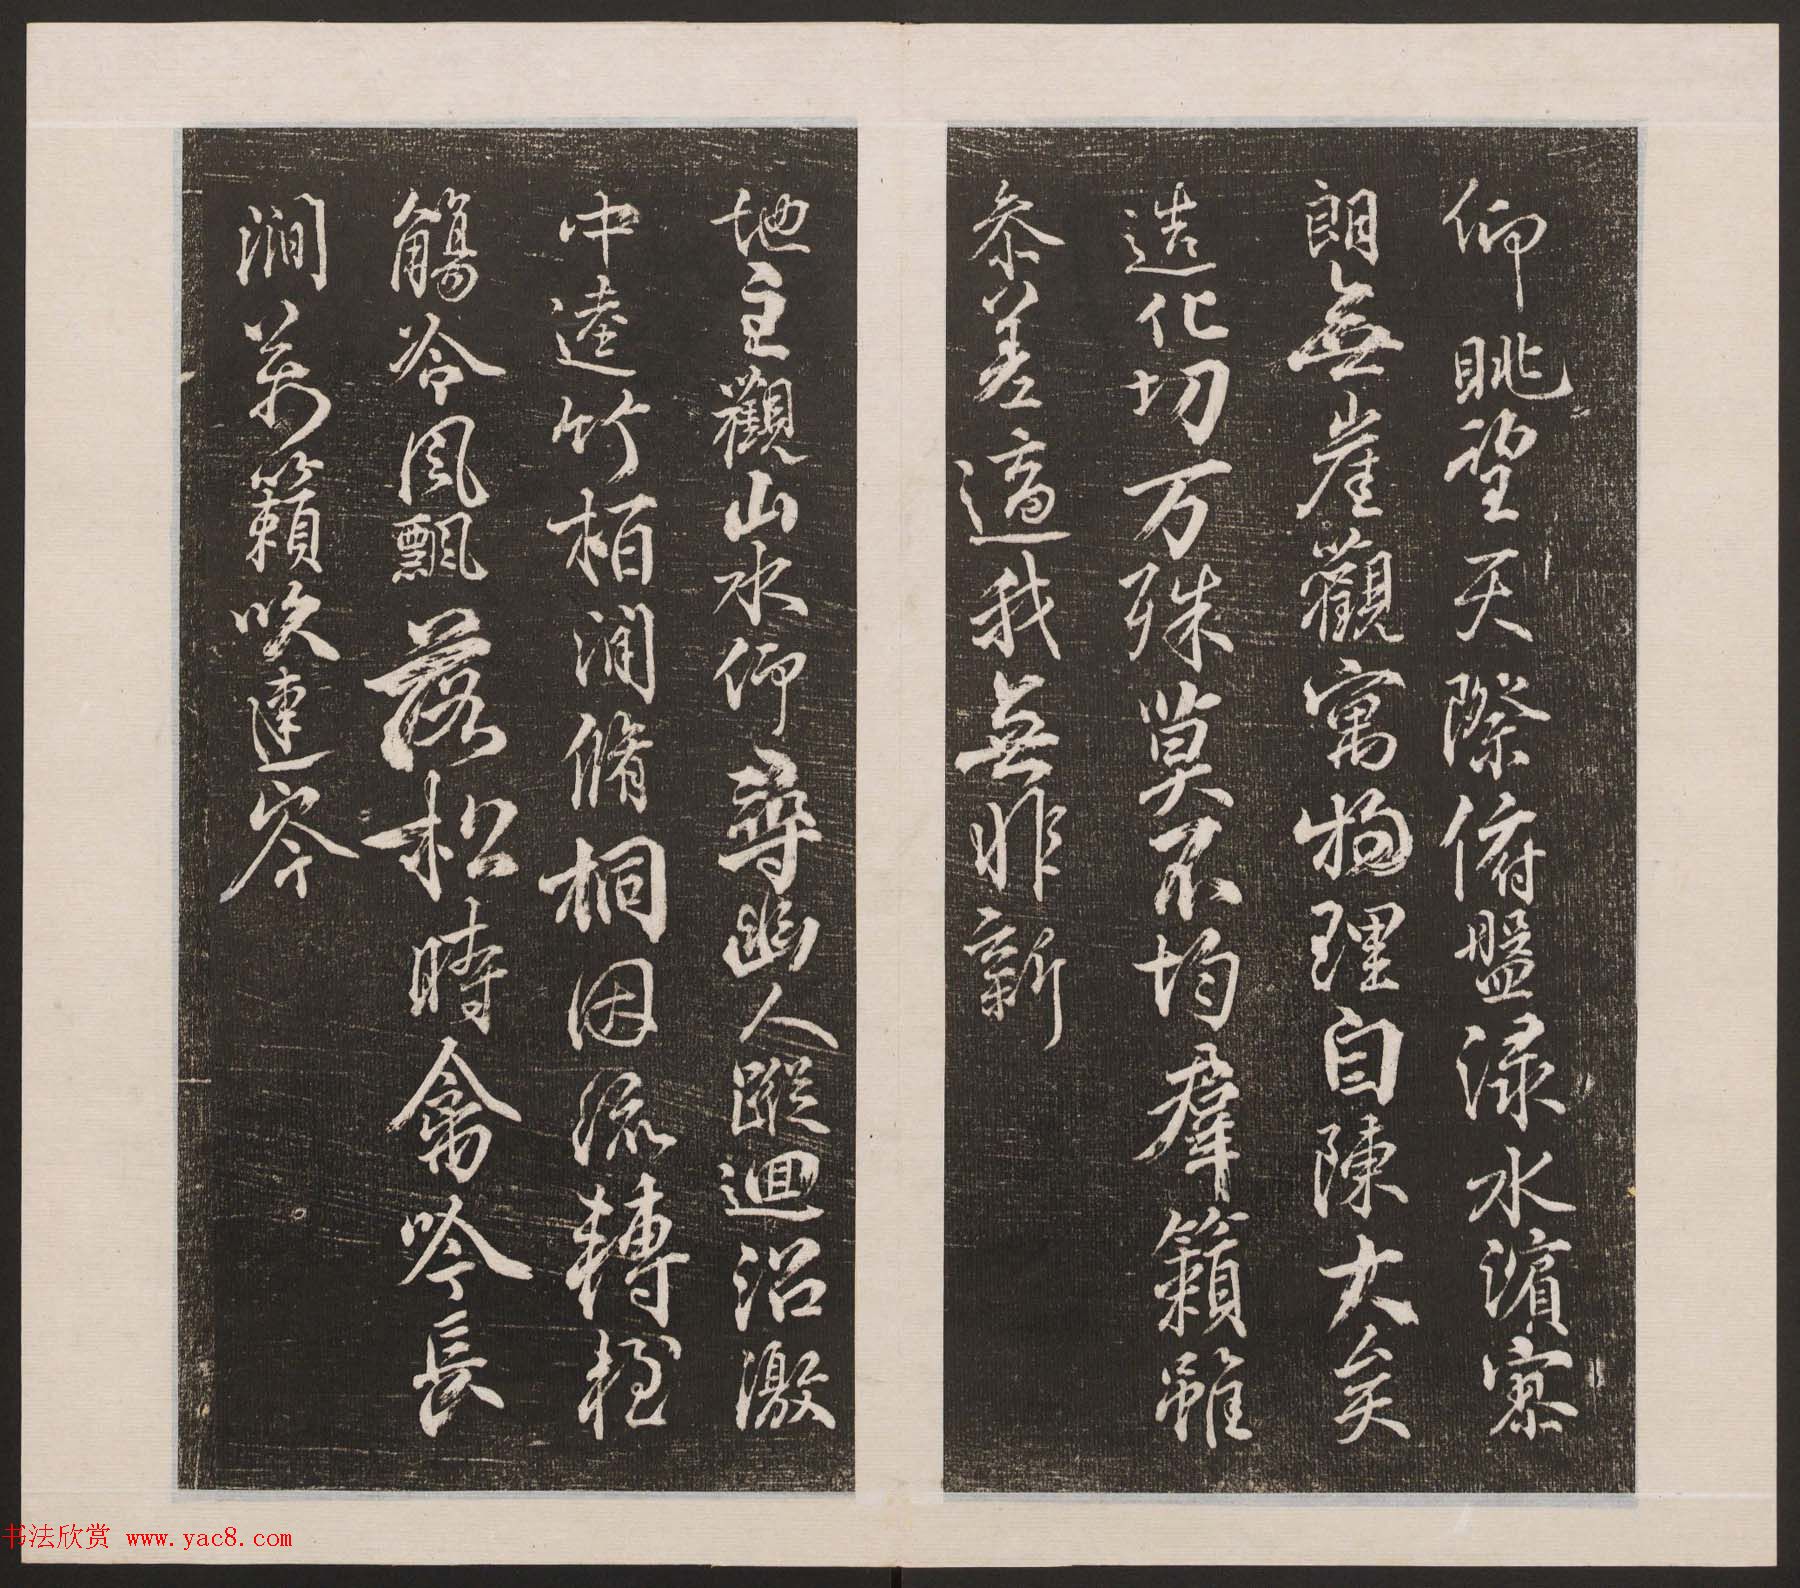 仰眺望天際俯盤淥水濱寥
朗無崖觀寓物理自陳大矣
造化切万殊莫不均羣籟雖
叅差適我無非新
地主觀山水仰尋幽人蹤迴沼激
中逵竹栢間脩桐因流轉輕
觴冷風飄落松時禽吟長
澗萬籟吹連岑
书法欣赏 www.yac8.com